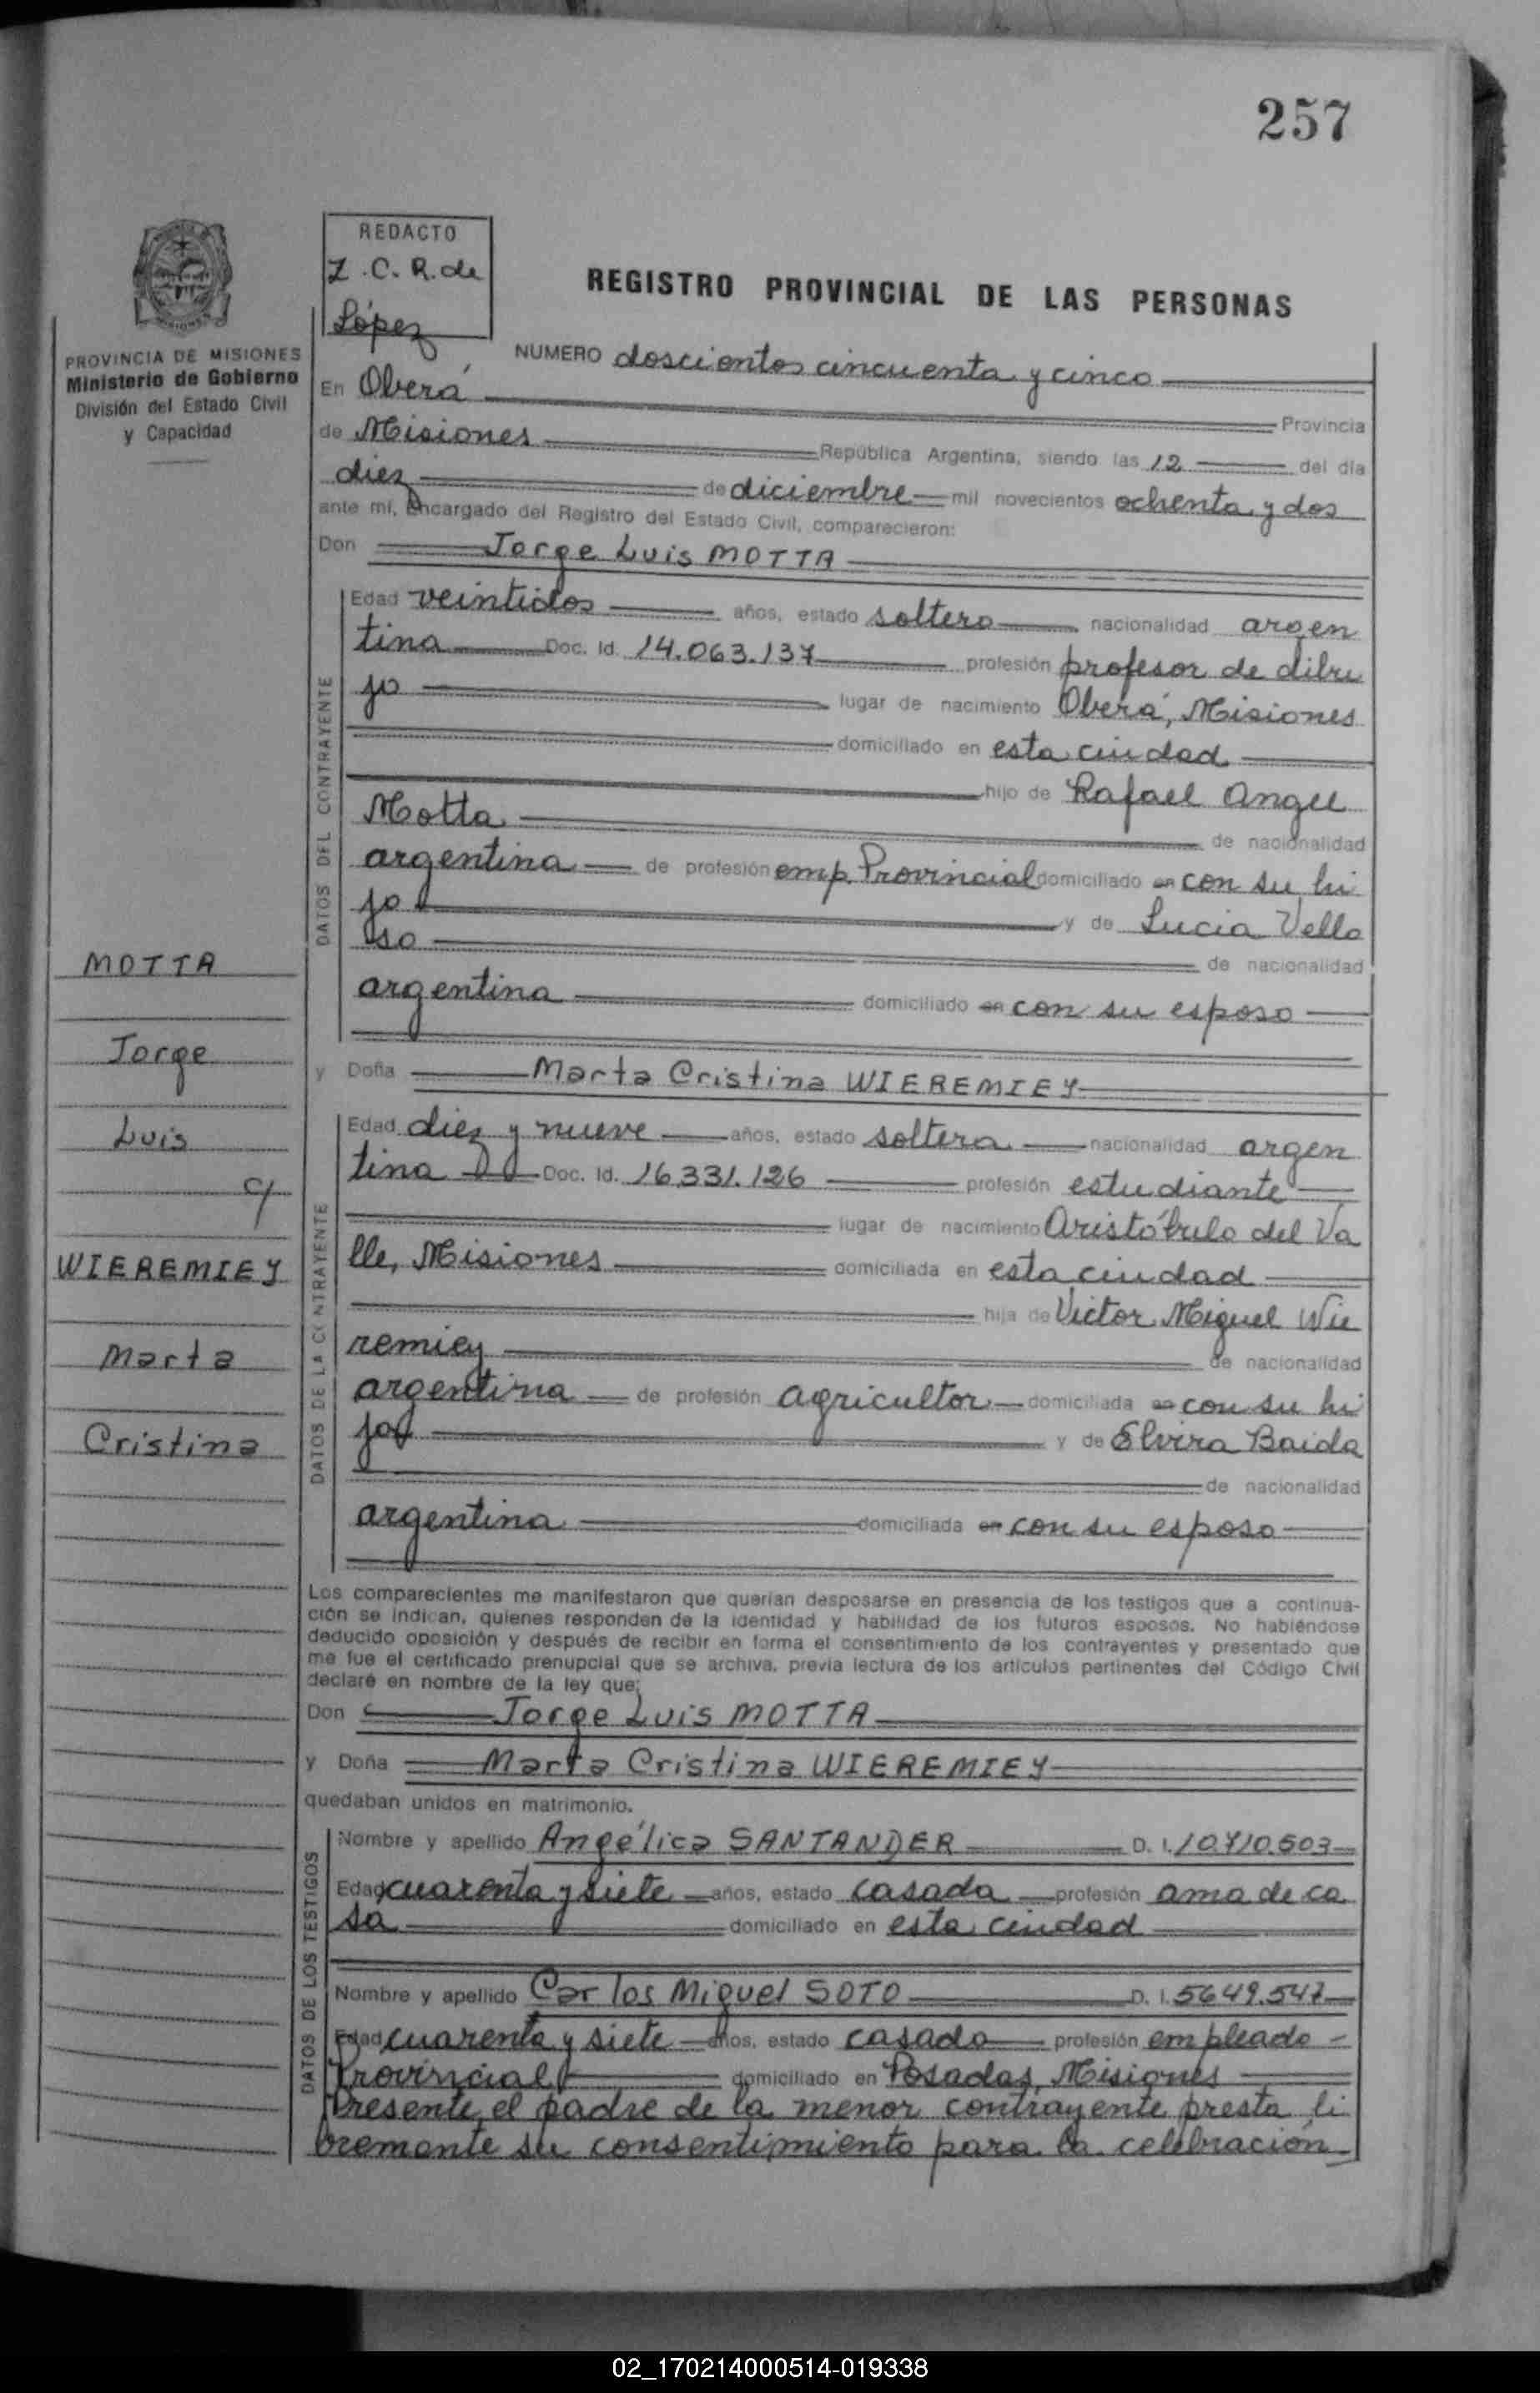 257
REDACTO
Z. C. R. de
López
REGISTRO PROVINCIAL DE LAS PERSONAS
PROVINCIA DE MISIONES
Ministerio de Gobierno
División del Estado Civil
y Capacidad
NUMERO doscientos cincuenta y cinco
En Oberá Provincia
de Misiones República Argentina, siendo las 12 del día
diez de diciembre mil novecientos ochenta y dos
ante mí, Encargado del Registro del Estado Civil, comparecieron:
Don Jorge Luis MOTTA
DATOS DEL CONTRAYENTE
Edad veintidos años, estado soltero nacionalidad argen
tina Doc. Id. 14.063.137 profesión profesor de dibu
jo lugar de nacimiento Oberá, Misiones
domiciliado en esta ciudad
hijo de Rafael Angel
Motta de nacionalidad
argentina de profesión emp. Provincial domiciliado en con su hi
jo y de Lucia Vello
so de nacionalidad
argentina domiciliado en con su esposo
y Doña Marta Cristina WIEREMIEY
DATOS DE LA CONTRAYENTE
Edad diez y nueve años, estado soltera nacionalidad argen
tina Doc. Id. 16.331.126 profesión estudiante
lugar de nacimiento Aristóbulo del Va
lle, Misiones domiciliada en esta ciudad
hija de Victor Miguel Wie
remiey de nacionalidad
argentina de profesión agricultor domiciliada en con su hi
ja y de Elvira Baida
de nacionalidad
argentina domiciliada en con su esposo
MOTTA
Jorge
Luis
c/
WIEREMIEY
Marta
Cristina
Los comparecientes me manifestaron que querían desposarse en presencia de los testigos que a continua-
ción se indican, quienes responden de la identidad y habilidad de los futuros esposos. No habiéndose
deducido oposición y después de recibir en forma el consentimiento de los contrayentes y presentado que
me fue el certificado prenupcial que se archiva, previa lectura de los artículos pertinentes del Código Civil
declaré en nombre de la ley que;
Don Jorge Luis MOTTA
y Doña Marta Cristina WIEREMIEY
quedaban unidos en matrimonio.
DATOS DE LOS TESTIGOS
Nombre y apellido Angélica SANTANDER D. I. 10.710.503
Edad cuarenta y siete años, estado casada profesión ama de ca
sa domiciliado en esta ciudad
Nombre y apellido Carlos Miguel SOTO D. I. 5649.547
Edad cuarenta y siete años, estado casado profesión empleado
Provincial domiciliado en Posadas, Misiones
Presente, el padre de la menor contrayente presta li
bremente su consentimiento para la celebración
02_170214000514-019338